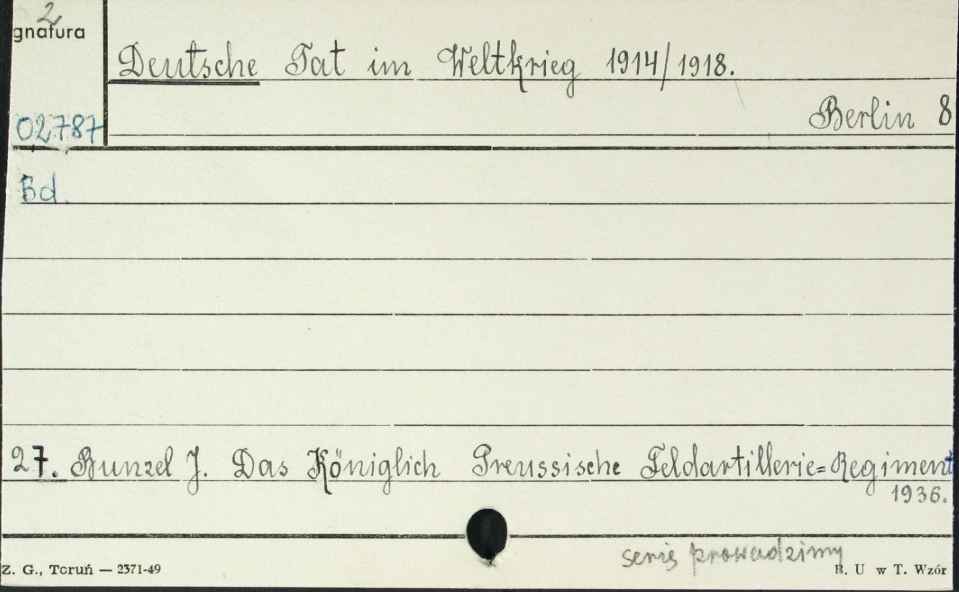 2
gnatura
Deutsche Tat im Weltkrieg 1914/1918.
02787
Berlin 8
Bd.
27. Bunzel J. Das Königlich Preussische Feldartillerie=Regiment
1936.
serię prowadzimy
Z. G., Toruń — 2371-49
B. U w T. Wzór